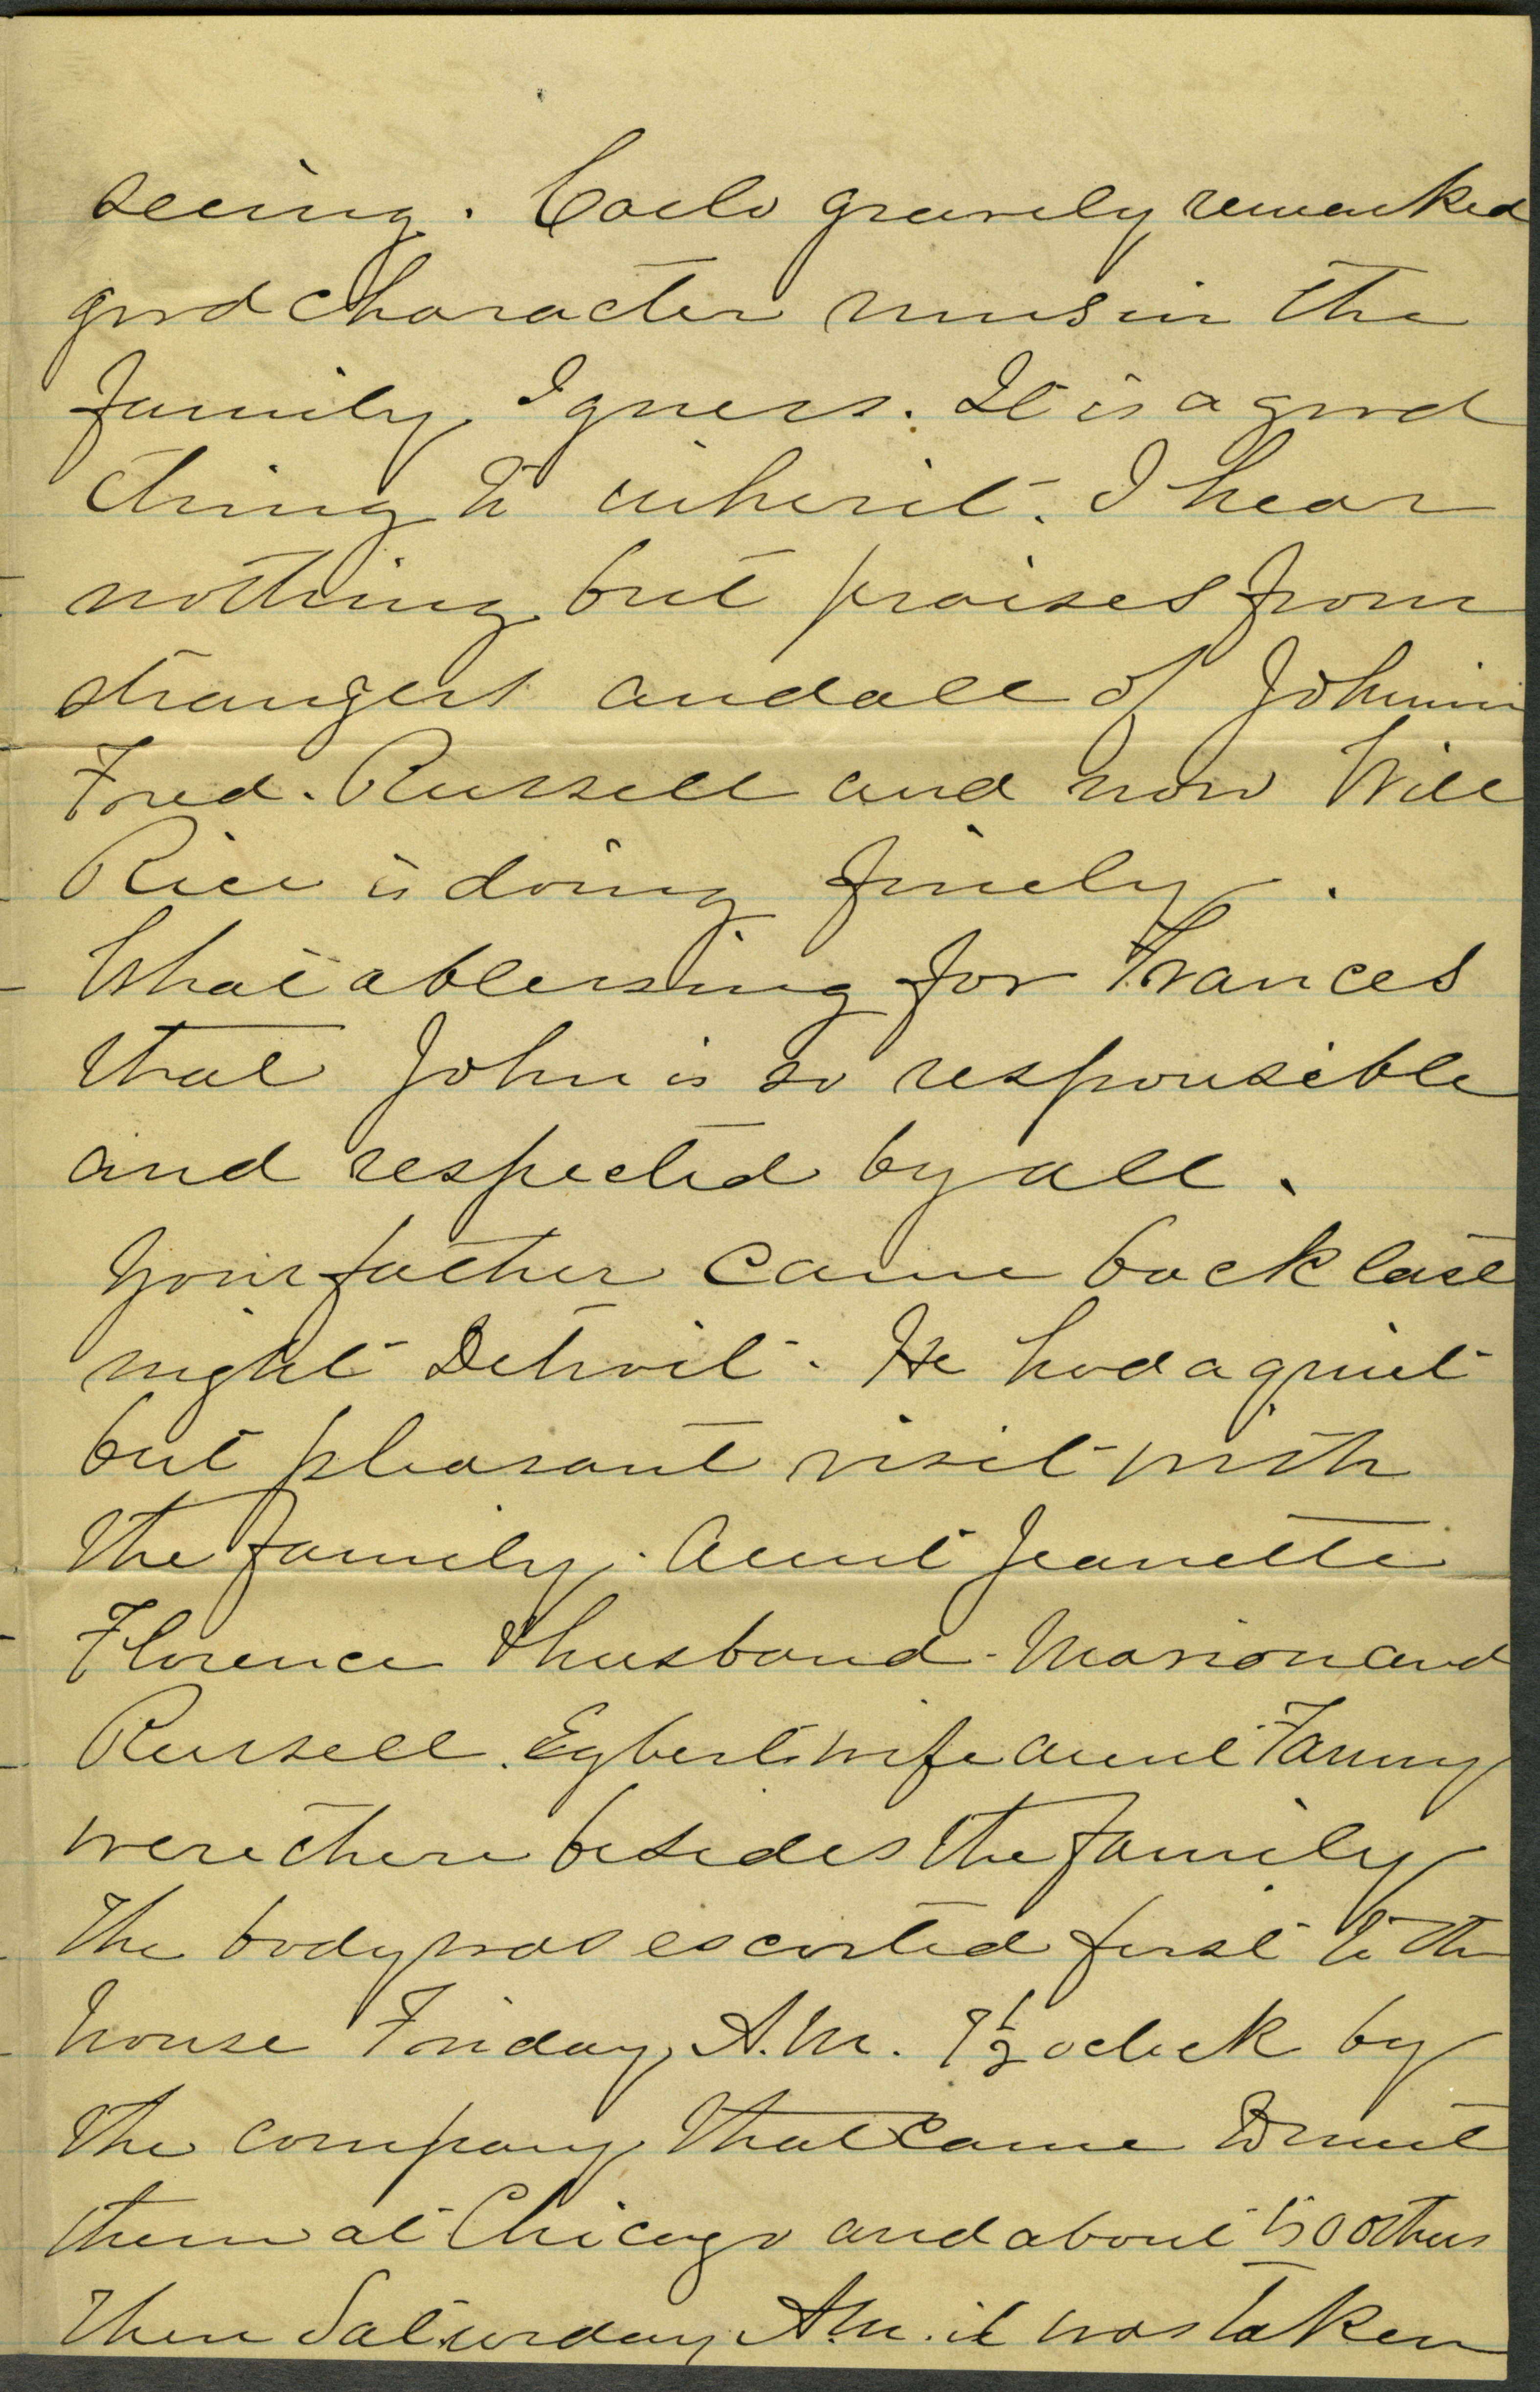 seeing. Carlo gravely remarked
good character runs in the
family, I guess. It is a good
thing to inherit. I hear
nothing but praises from
strangers and all of Johnnie
Fred. Russell and now Will
Rice is doing finely.
What a blessing for Frances
that John is so responsible
and respected by all.
Your father came back last
night Detroit. He had a quiet
but pleasant visit with
the family. Aunt Jeanette
Florence & husband - Marion and
Russell. Egbert wife Aunt Fanny
were there besides the family
The body was escorted first to the
house Friday A.M. 9½ oclock by
the company that came to meet
them at Chicago and about 50 others
then Saturday A.M. it was taken